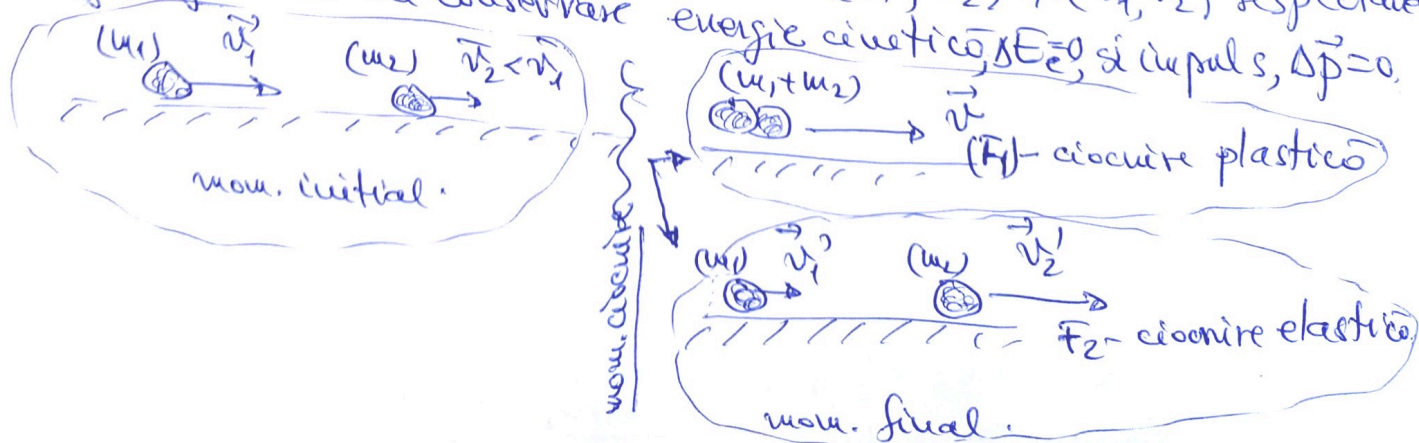 conservare
energie cinetică, ΔEc=0, si impuls, Δp⃗=0.
(m1) v⃗1 (m2) v⃗2 < v⃗1
mom. initial.
mom. ciocnire
(m1+m2) v⃗
(F1)- ciocnire plastică
(m1) v⃗1' (m2) v⃗2'
F2- ciocnire elastică
mom. final.